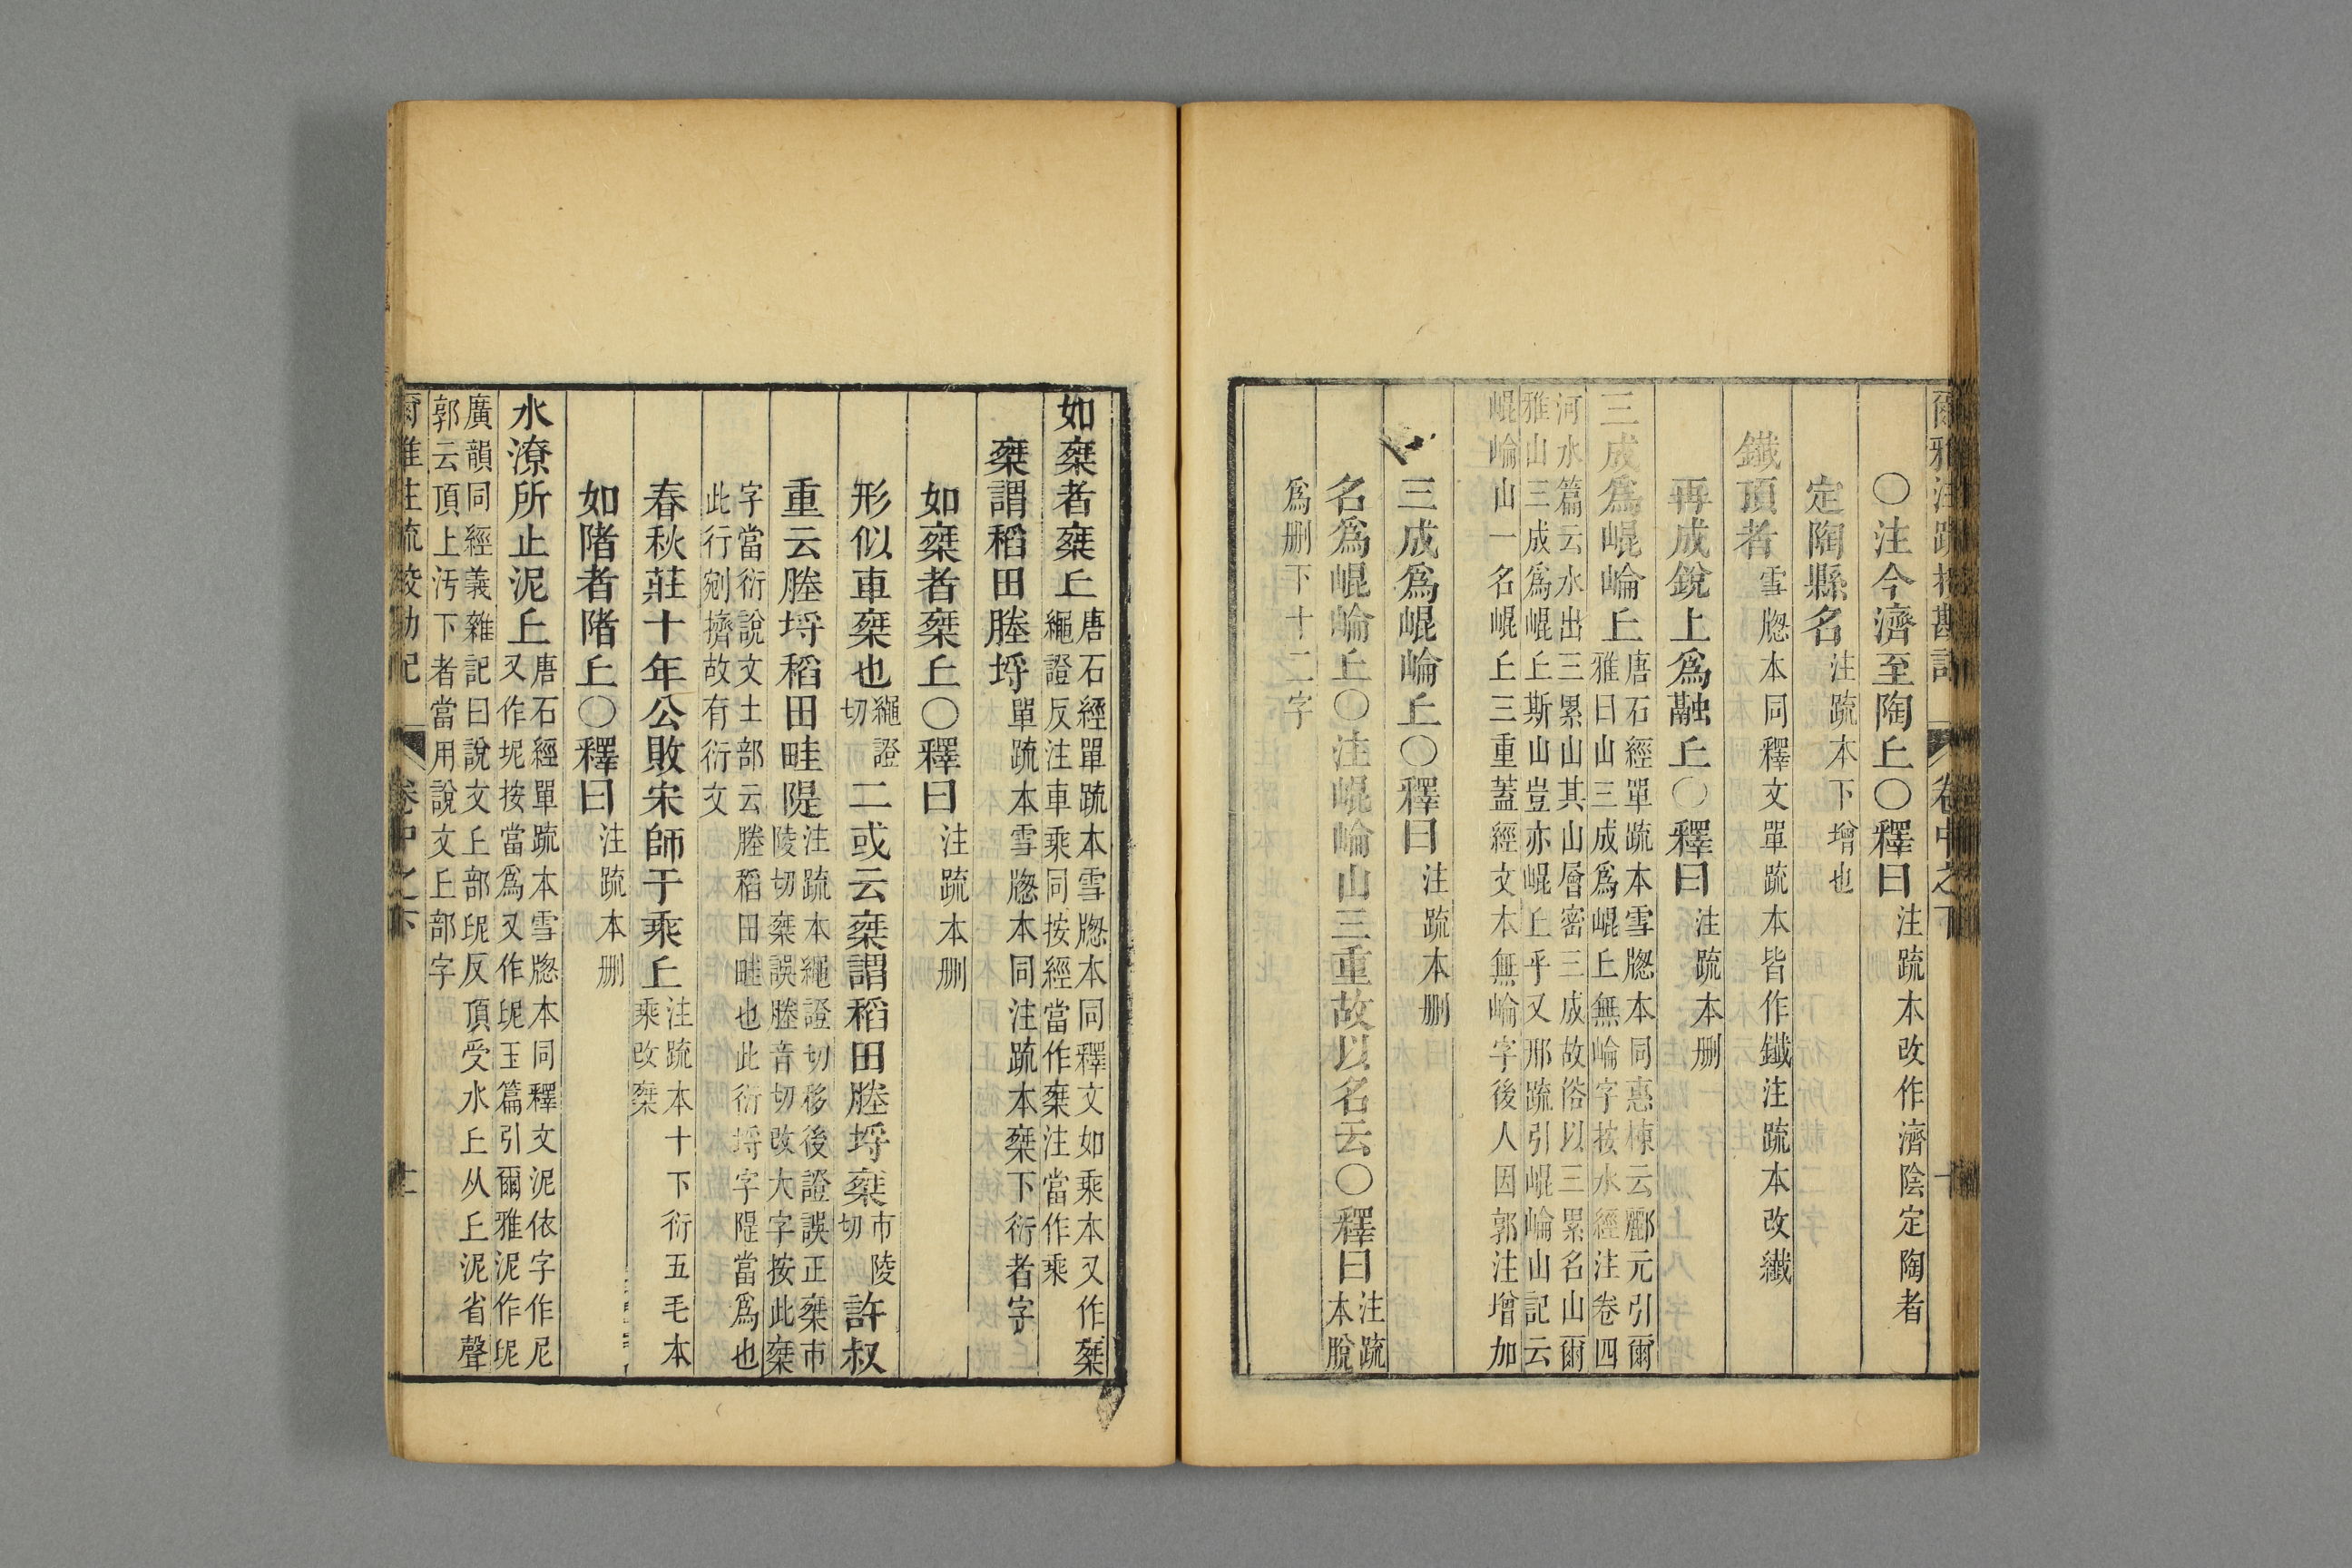 爾雅注疏挍勘記 卷中之下 十
〇注今濟至陶丘〇釋曰注疏本改作濟陰定陶者
定陶縣名注疏本下增也
鐵頂者雪牕本同釋文單疏本皆作鐵注疏本改纖
再成銳上爲融丘〇釋曰注疏本刪
三成爲崐崘丘唐石經單疏本雪牕本同惠棟云酈元引爾
雅曰山三成爲崐丘無崘字按水經注卷四
河水篇云水出三累山其山層密三成故俗以三累名山爾
雅山三成爲崐丘斯山豈亦崐丘乎又邢疏引崐崘山記云
崐崘山一名崐丘三重蓋經文本無崘字後人因郭注增加
三成爲崐崘丘〇釋曰注疏本刪
名爲崐崘丘〇注崐崘山三重故以名云〇釋曰注疏
本脫
爲刪下十二字
如椉者椉丘唐石經單疏本雪牕本同釋文如乘本又作椉
繩證反注車乘同按經當作椉注當作乘
椉謂稻田塍埒單疏本雪牕本同注疏本椉下衍者字
如椉者椉丘〇釋曰注疏本刪
形似車椉也繩證切二或云椉謂稻田塍埒椉市陵切許叔
重云塍埒稻田畦隄注疏本繩證切移後證誤正椉市
陵切椉誤塍音切改大字按此椉
字當衍說文土部云塍稻田畦也此衍埒字隄當爲也
此行剜擠故有衍文
春秋莊十年公敗宋師于乘丘注疏本十下衍五毛本
乘改椉
如陼者陼丘〇釋曰注疏本刪
水潦所止泥丘唐石經單疏本雪牕本同釋文泥依字作尼
又作坭按當爲又作㞾玉篇引爾雅泥作坭
廣韻同經義雜記曰說文丘部㞾反頂受水丘从丘泥省聲
郭云頂上汚下者當用說文丘部字
爾雅注疏挍勘記 卷中之下 十一